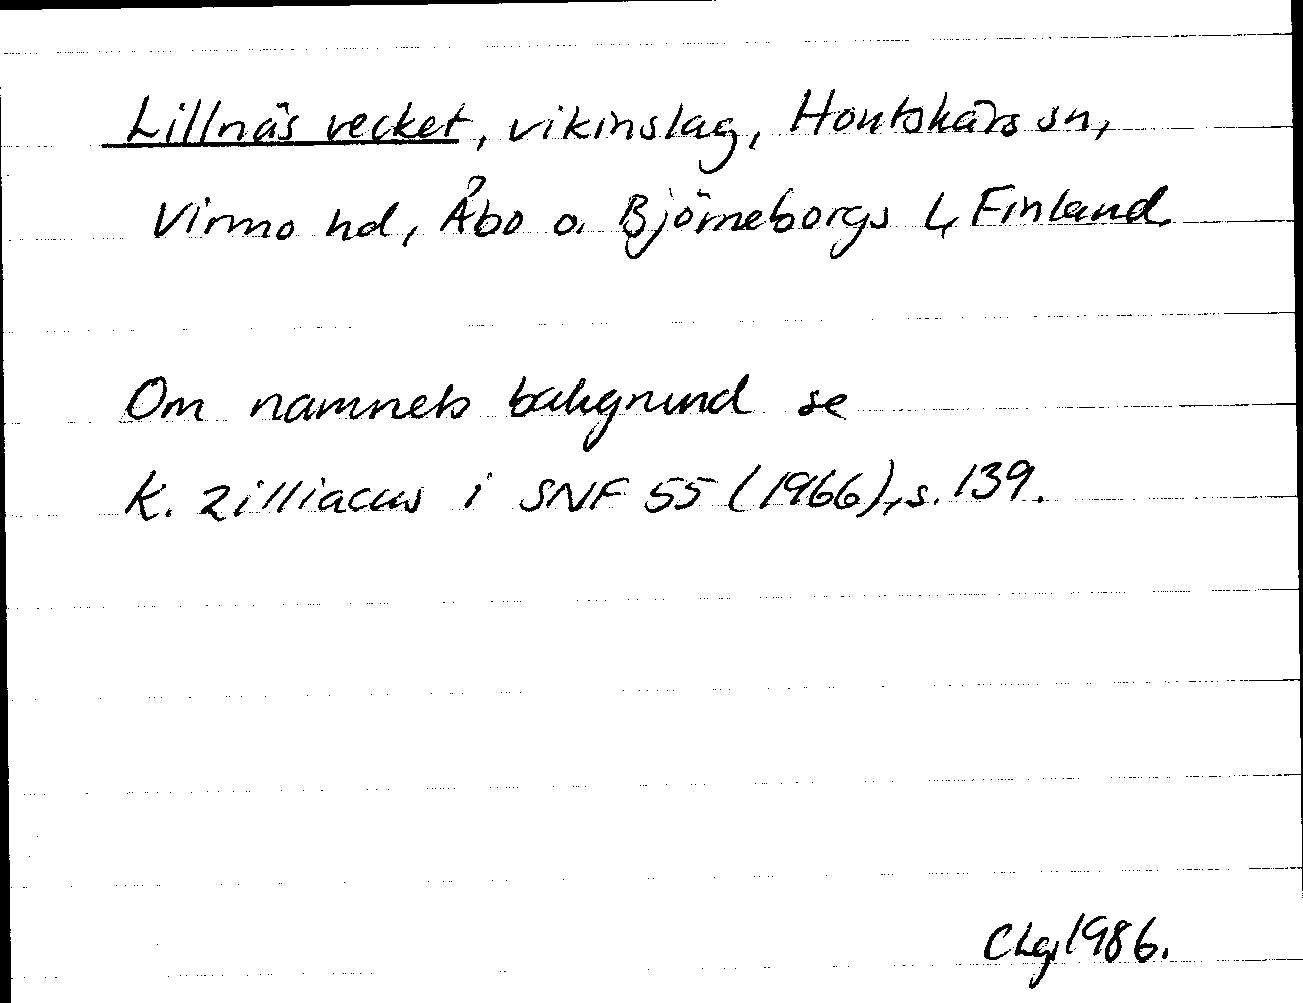 Lillnäs vecket, vikinslag, Houtskärs sn,
Virmo hd, Åbo o. Björneborgs l, Finland
Om namnets bakgrund se
K. Zilliacus i SNF 55 (1966), s. 139.
CLg 1986.